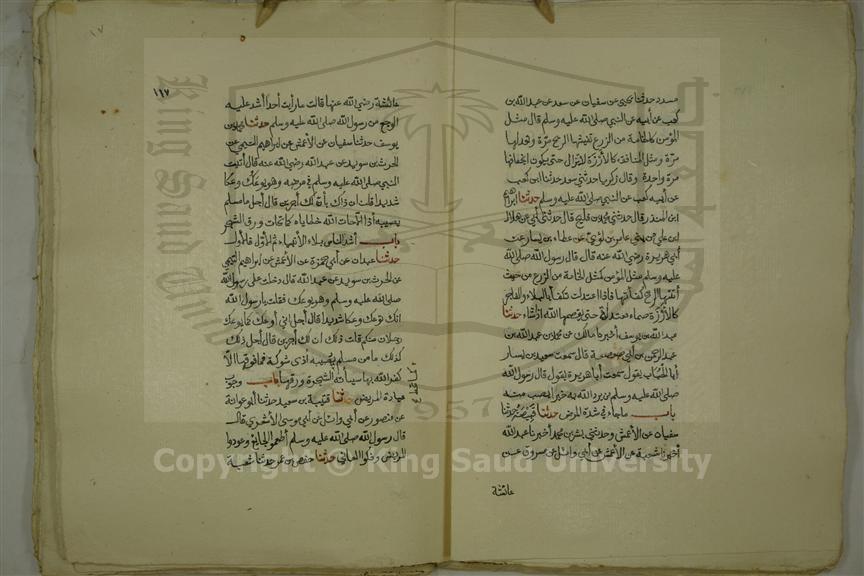 مسدد حدثنا يحيى عن سفيان عن سعد عن عبد الله بن
كعب عن أبيه عن النبي صلى الله عليه وسلم قال مثل
المؤمن كالخامة من الزرع تفيئها الريح مرّة وتعدلها
مرّة ومثل المنافق كالأرزة لا تزال حتى يكون انجعافها
مرة واحدة وقال زكريا حدثني سعد حدثنا ابن كعب
عن أبيه كعب عن النبي صلى الله عليه وسلم حدثنا ابراهيم
ابن المنذر قال حدثني محمد بن فليح قال حدثني أبي عن هلال
ابن علي من بني عامر بن لؤيّ عن عطاء بن يسار عن
أبي هريرة رضي الله عنه قال قال رسول الله صلى الله
عليه وسلم مثل المؤمن كمثل الخامة من الزرع من حيث
أتتها الريح كفأتها فاذا اعتدلت تكفأ بالبلاء والفاجر
كالأرزة صماء معتدلة حتى يقصمها الله اذا شاء حدثنا
عبد الله بن يوسف أخبرنا مالك عن محمد بن عبد الله بن
عبد الرحمن بن أبي صعصعة قال سمعت سعيد بن يسار
أبا الحباب يقول سمعت أبا هريرة يقول قال رسول الله
صلى الله عليه وسلم من يرد الله به خيرا يصب منه
باب ما جاء في شدة المرض حدثنا قبيصة حدثنا
سفيان عن الأعمش وحدثني بشر بن محمد أخبرنا عبد الله
أخبرنا شعبة عن الأعمش عن أبي وائل عن مسروق عن
عائشة
١٦٧
عائشة رضي الله عنها قالت ما رأيت أحدا أشد عليه
الوجع من رسول الله صلى الله عليه وسلم حدثنا محمد بن
يوسف حدثنا سفيان عن الأعمش عن ابراهيم التيمي عن
الحرث بن سويد عن عبد الله رضي الله عنه قال أتيت
النبي صلى الله عليه وسلم في مرضه وهو يوعك وعكا
شديدا قلت ان ذاك بأن لك أجرين قال أجل ما من مسلم
يصيبه أذا الا حات الله خطاياه كما تحات ورق الشجر
باب أشد الناس بلاء الأنبياء ثم الأول فالأول
حدثنا عبدان عن أبي حمزة عن الأعمش عن ابراهيم التيمي
عن الحرث بن سويد عن عبد الله قال دخلت على رسول الله
صلى الله عليه وسلم وهو يوعك فقلت يا رسول الله
انك توعك وعكا شديدا قال أجل اني أوعك كما يوعك
رجلان منكم قلت ذلك ان لك أجرين قال أجل ذلك
كذلك ما من مسلم يصيبه أذى شوكة فما فوقها الا
كفر الله بها سيآته كالشجرة ورقها باب وجوب
عيادة المريض حدثنا قتيبة بن سعيد حدثنا أبو عوانة
عن منصور عن أبي وائل عن أبي موسى الأشعري قال
قال رسول الله صلى الله عليه وسلم أطعموا الجايع وعودوا
المريض وفكوا العاني حدثنا حفص بن عمر حدثنا شعبة
King Saud University
1957
Copyright © King Saud University